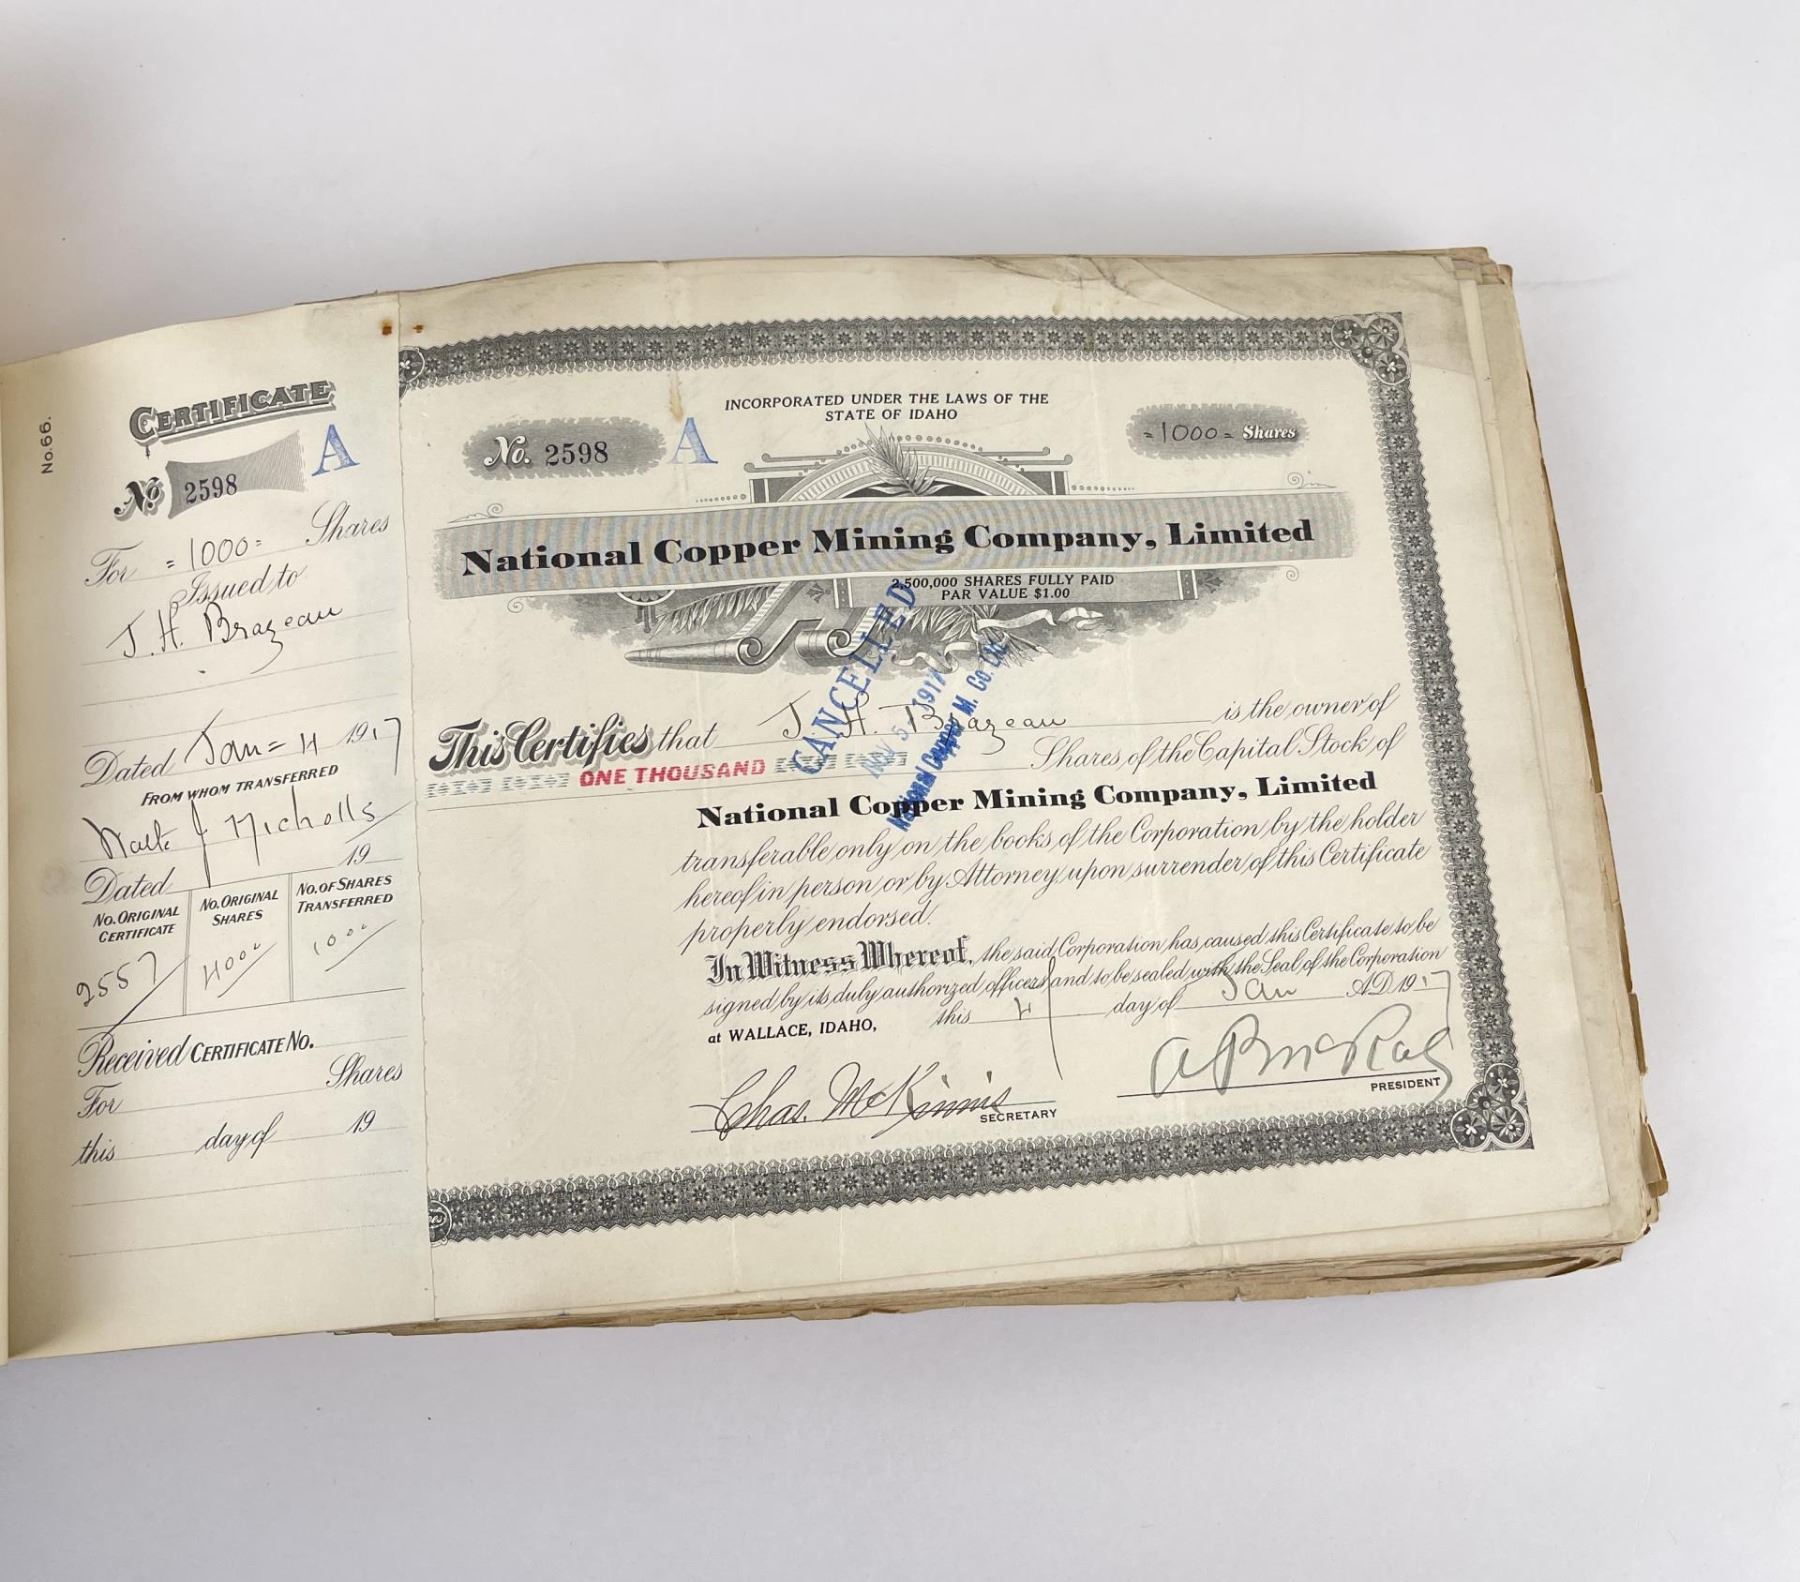 No.66.
CERTIFICATE
No 2598 A
For =1000= Shares
Issued to
J. H. Brazeau
Dated Jan = 4 1917
FROM WHOM TRANSFERRED
Walt J Nicholls
Dated 19
No. ORIGINAL CERTIFICATE
No. ORIGINAL SHARES
No. OF SHARES TRANSFERRED
2557 4000 1000
Received CERTIFICATE No.
For Shares
this day of 19
INCORPORATED UNDER THE LAWS OF THE
STATE OF IDAHO
No. 2598 A
=1000= Shares
National Copper Mining Company, Limited
2,500,000 SHARES FULLY PAID
PAR VALUE $1.00
CANCELLED
NOV 5 - 1917
National Copper M. Co. Ltd.
This Certifies that J. H. Brazeau is the owner of
ONE THOUSAND Shares of the Capital Stock of
National Copper Mining Company, Limited
transferable only on the books of the Corporation by the holder
hereof in person or by Attorney upon surrender of this Certificate
properly endorsed.
In Witness Whereof, the said Corporation has caused this Certificate to be
signed by its duly authorized officers and to be sealed with the Seal of the Corporation
at WALLACE, IDAHO, this 4 day of Jan A.D. 1917
Chas. McKinnis
SECRETARY
PRESIDENT